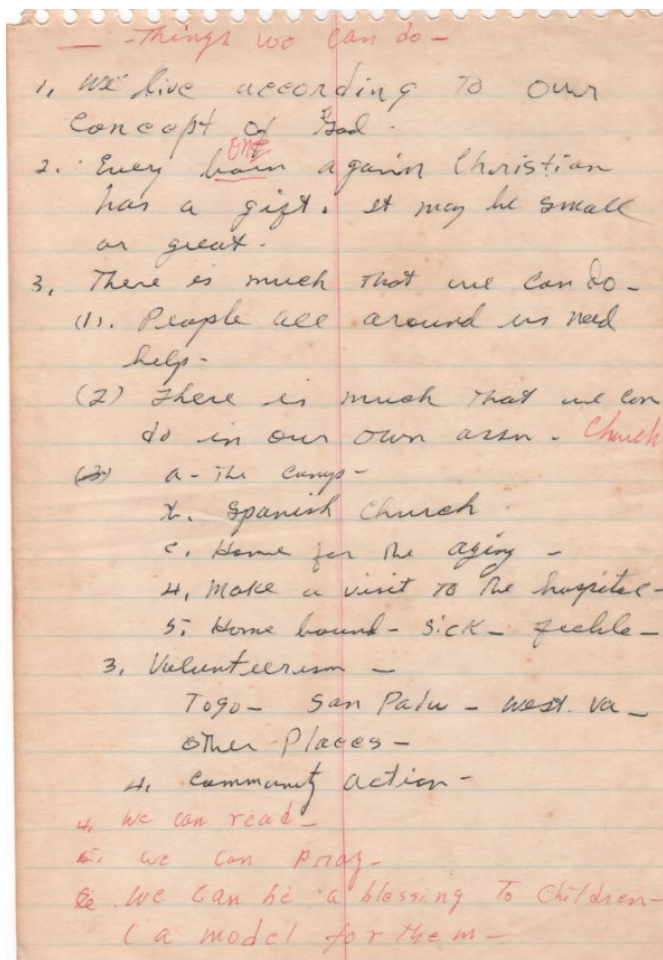 — -Things we can do-
1, We live according to our
Concept of God.
one
2. Every born again Christian
has a gift. It may be small
or great.
3, There is much that we can do-
(1). People all around us need
help-
(2) There is much that we can
do in our own assn. Church
(3) a- The camps-
b. Spanish Church
c. Home for the aging -
4, Make a visit to the hospital-
5; Home bound- sick- feeble-
3, Volunteerism -
Togo- San Palu - West. Va-
other Places-
4, Community action-
4, we can read-
5. we can pray-
6. We can be a blessing to children-
(a model for them-